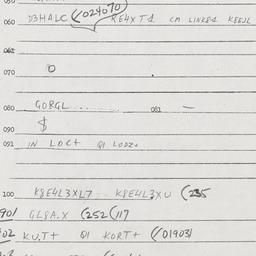 060 D3HALC (024070) RE4XT1 CM LINKB1 KEEJL
061
070 O
080 GORGL 081 —
090 $
091 IN LOC+ QI LODZ+
100 K8E4L3XL7 -- K8E4L3XU (235
901 GL8A.X (252(117
02 KU.T+ QI KORT+ (01903)